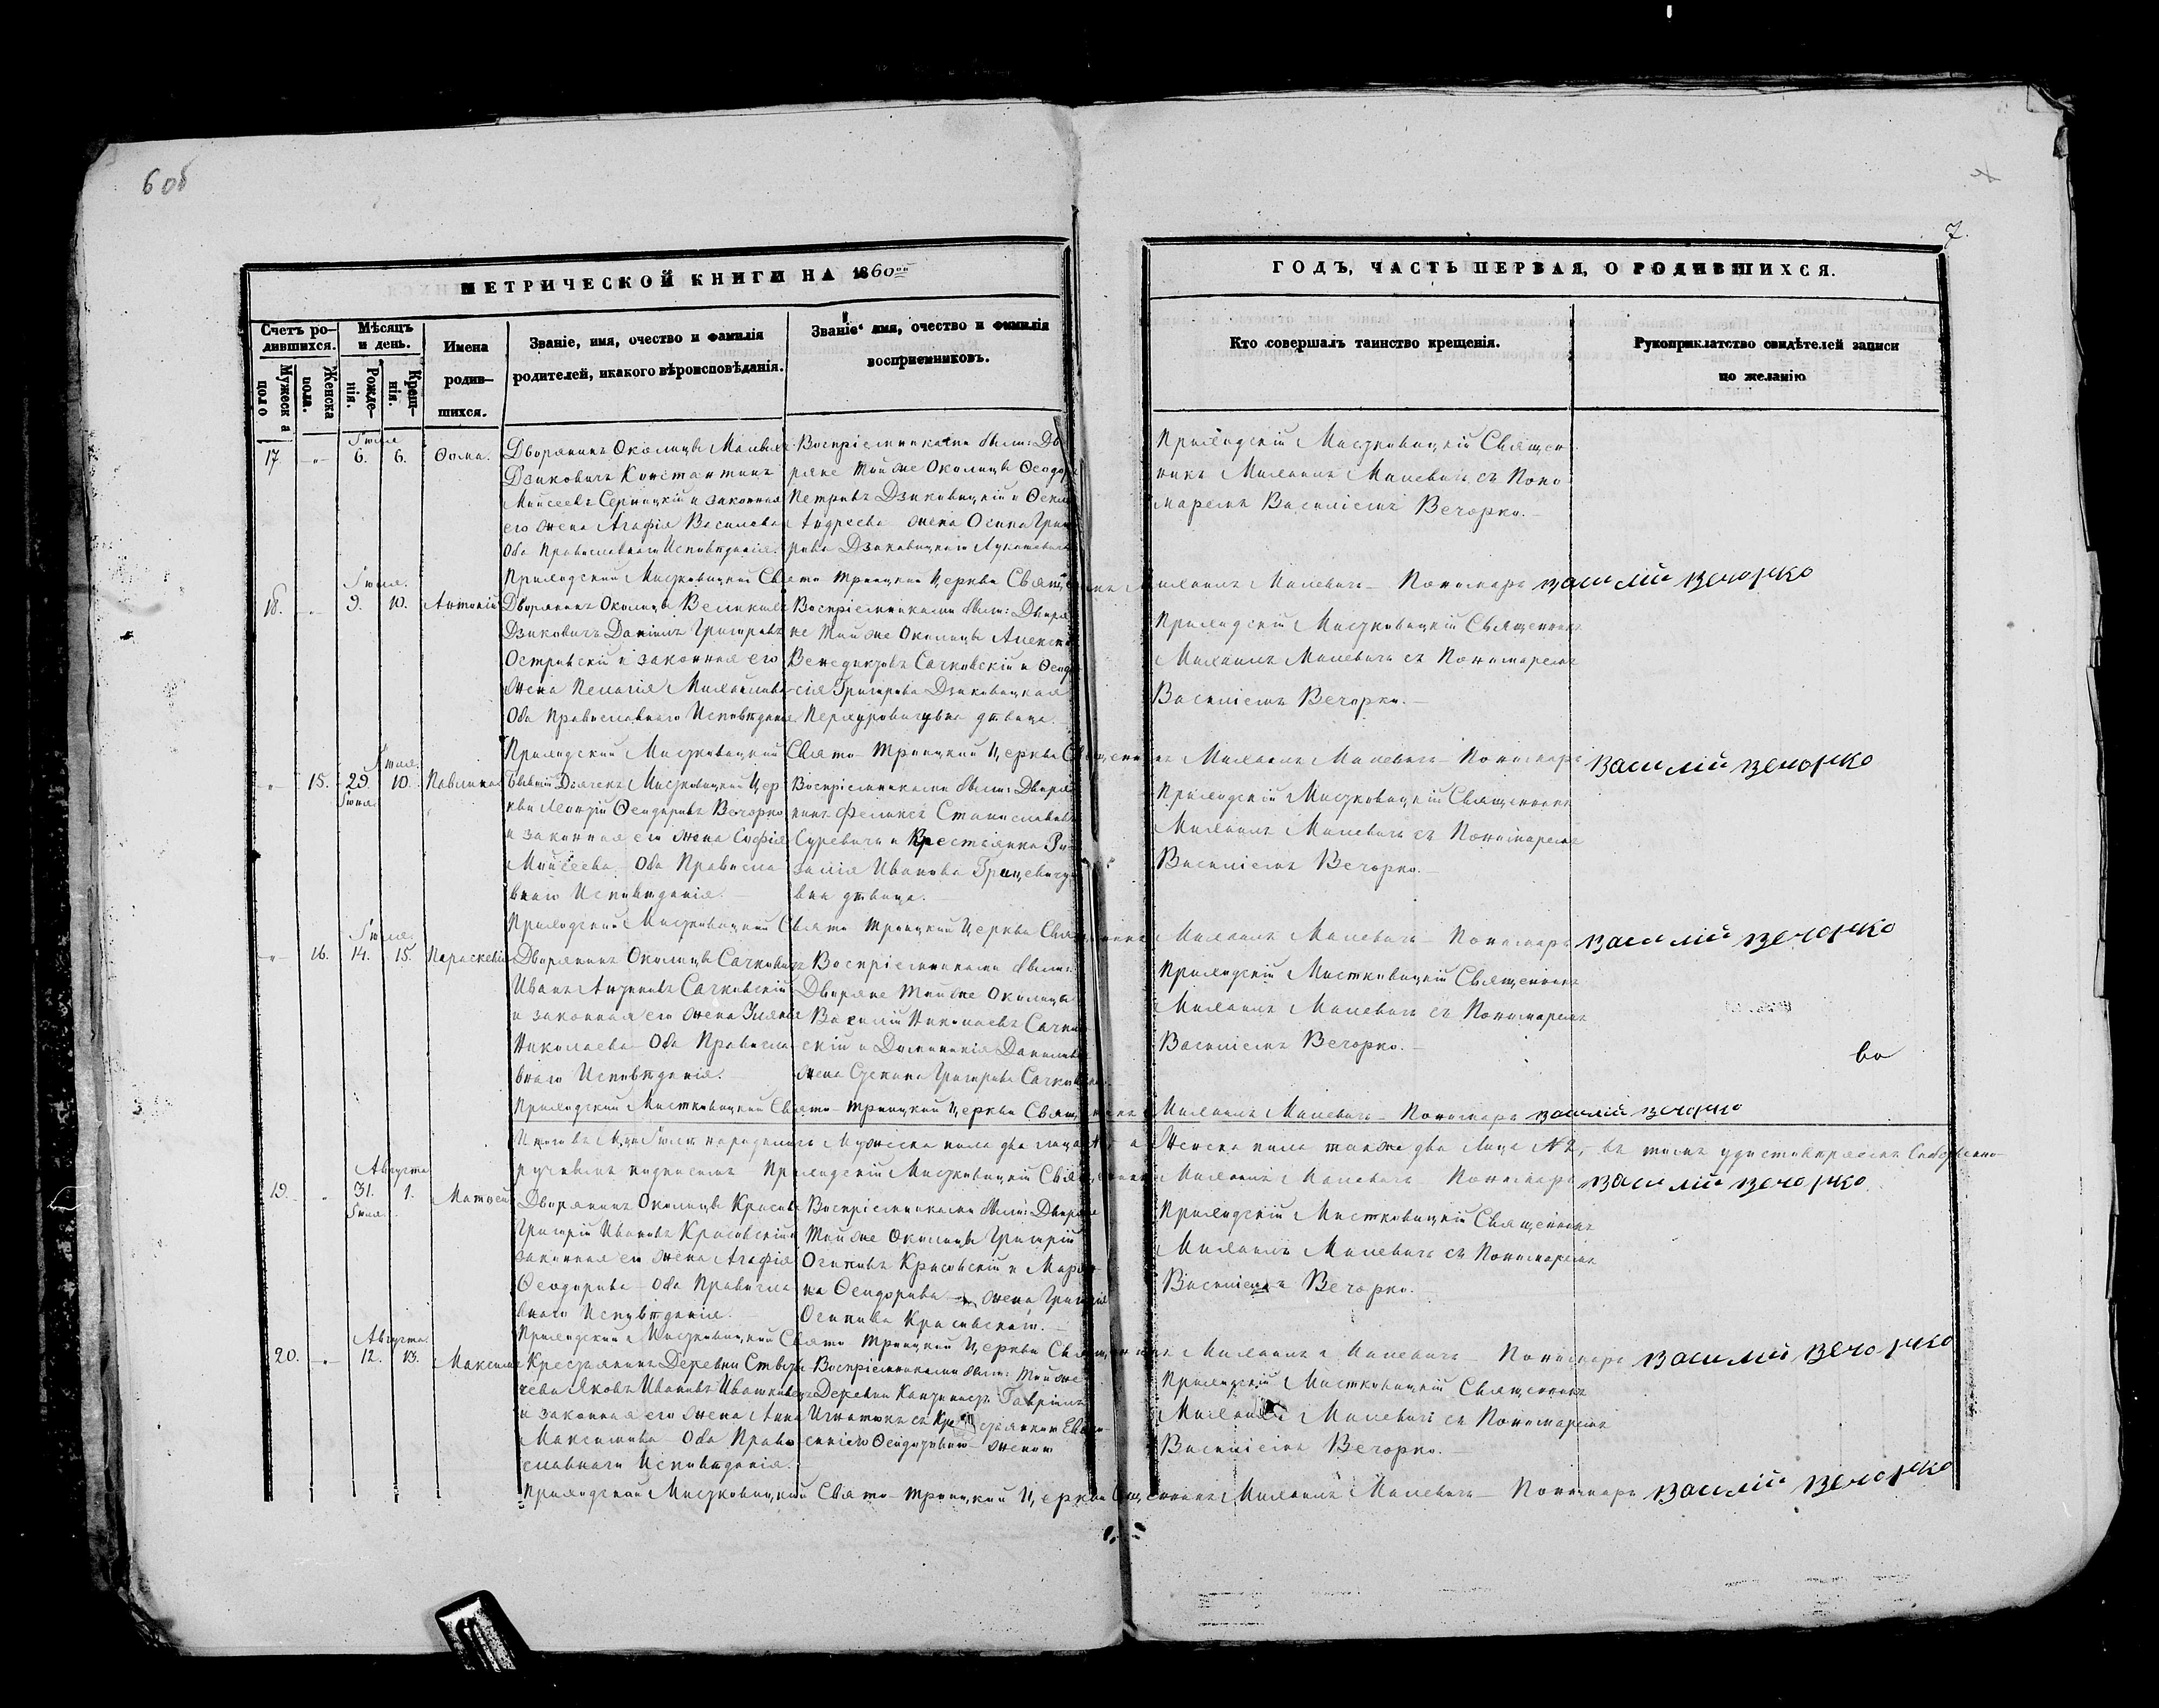 6 об
7.
МЕТРИЧЕСКОЙ КНИГИ НА 1860
ГОДЪ, ЧАСТЬ ПЕРВАЯ, О РОДИВШИХСЯ.
Счетъ ро-
дившихся.
Мужеска
Женска
пола.
Мѣсяцъ
и день.
Рожде-
нія.
Крещ-
нія.
Имена
родив-
шихся.
Званіе, имя, очество и фамилія
родителей, икакого вѣроисповѣданія.
Званіе, имя, очество и фамилія
воспріемниковъ.
Кто совершалъ таинство крещенія.
Рукоприклатство свидѣтелей записи
по желанію
Іюля
17. 6. 6.
Дворянинъ Околицы Малыя
Дзиковичъ Константинъ
Моисеевъ Серницкій и законная
его жена Агафія Василева
Оба Православнаго Исповѣданія.
Воспріемниками были: Дво
ряне тойже Околицы Ѳеодоръ
Петровъ Дзиковицкій и
Андреева жена Осипа Григо
Приходскій Мистковицкій Священ
никъ Михаилъ Малевичъ съ Поно
маремъ Василіемъ Вечорко.
Приходской Мистковицкой Свято Троицкой Церкви Священникъ Михаилъ Малевичъ Пономарь василій вечорко
Іюля.
18. 9. 10. Антоній
Дворянинъ Околицы Великихъ
Дзиковичъ Даніилъ Григорьевъ
Островскій и законная его
жена Пелагія Михайлова
Оба Православнаго Исповѣданія
Воспріемниками были: Дворя
не тойже Околицы Алексѣй
Венедиктовъ Сачковскій и Ѳеодо
сія Григорьева Дзиковицкая
дѣвица.
Приходскій Мистковицкій Священникъ
Михаилъ Малевичъ съ Пономаремъ
Василіемъ Вечорко.
Приходской Мистковицкой Свято Троицкой Церкви Священникъ Михаилъ Малевичъ Пономарь василій вечорко
Іюля
15. 29 10. Павлина
Іюня
Бывшій Дьячекъ Мистковицкой Цер
кви Леонтій Ѳеодоровъ Вечорко
и законная его жена Софія
Моисеева Оба Правосла
внаго Исповѣданія.
Воспріемниками были: Дворя
нинъ Феликсъ Станиславовъ
Суревичъ и Крестьянка Ро
залія Иванова Грицевичу
вна дѣвица.
Приходскій Мистковицкій Священникъ
Михаилъ Малевичъ съ Пономаремъ
Василіемъ Вечорко.
Приходской Мистковицкой Свято Троицкой Церкви Священникъ Михаилъ Малевичъ Пономарь василій вечорко
Іюля.
16. 14. 15. Параскевія
Дворянинъ Околицы Сачковичъ
Иванъ Антоновъ Сачковскій
и законная его жена Уліяна
Николаева Оба Правосла
внаго Исповѣданія.
Воспріемниками были:
Дворяне тойже Околицы
Василій Николаевъ Сачков
скій и Доминикія Данилова
жена Степана Григорьева
Приходскій Мистковицкій Священникъ
Михаилъ Малевичъ съ Пономаремъ
Василіемъ Вечорко.
во
Приходской Мистковицкой Свято Троицкой Церкви Священникъ Михаилъ Малевичъ Пономарь василій вечорко
Итого въ Іюлѣ народилось Мужеска пола два лица а Женска пола также два Лица № 2, въ томъ удостовѣряемъ
ручнымъ подписомъ Приходскій Мистковицкій Священникъ Михаилъ Малевичъ Пономарь василій вечорко
Августа
19. 31. 1. Матѳей
Іюля
Дворянинъ Околицы Красова
Григорій Ивановъ Красовскій и
законная его жена Агафія
Ѳеодорова Оба Правосла
внаго Исповѣданія.
Воспріемниками были: Дворяне
тойже Околицы Григорій
Осиповъ Красовскій и Марі
на Ѳеодорова жена Григорія
Осипова Красовскаго.
Приходскій Мистковицкій Священникъ
Михаилъ Малевичъ съ Пономаремъ
Василіемъ Вечорко.
Приходской Мистковицкой Свято Троицкой Церкви Священникъ Михаилъ Малевичъ Пономарь василій вечорко
Августа.
20. 12. 13. Максимъ
Крестьянинъ Деревни
Яковъ Ивановъ
и законная его жена Анна
Максимова Оба Право
славнаго Исповѣданія.
Воспріемниками были: Тойже
Деревни Гавріилъ
Игнатюкъ съ Крестьянкою
Ѳеодоровою женою
Приходскій Мистковицкій Священникъ
Михаилъ Малевичъ съ Пономаремъ
Василіемъ Вечорко.
Приходской Мистковицкой Свято Троицкой Церкви Священникъ Михаилъ Малевичъ Пономарь василій вечорко